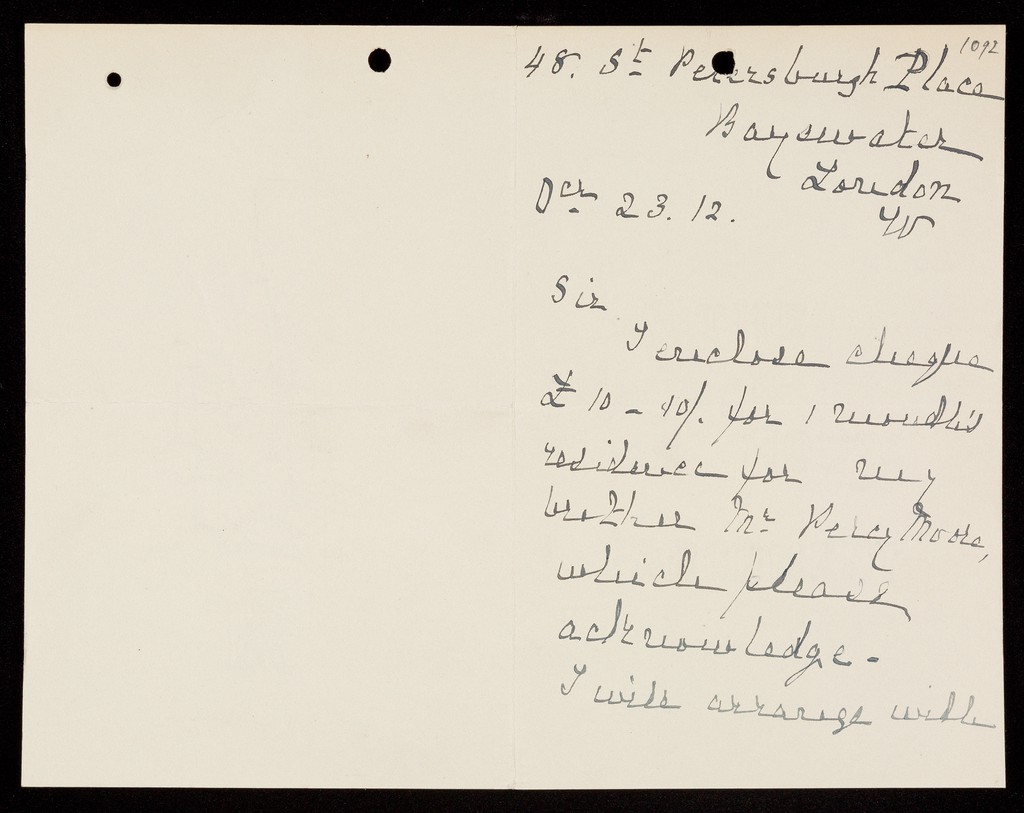 1092
48. St Petersburgh Place
Bayswater
London
W
Dcr 23. 12.
Sir
I enclose cheque
£10-10/. for 1 month's
residence for my
brother Mr Percy Moore,
which please
acknowledge.
I will arrange with